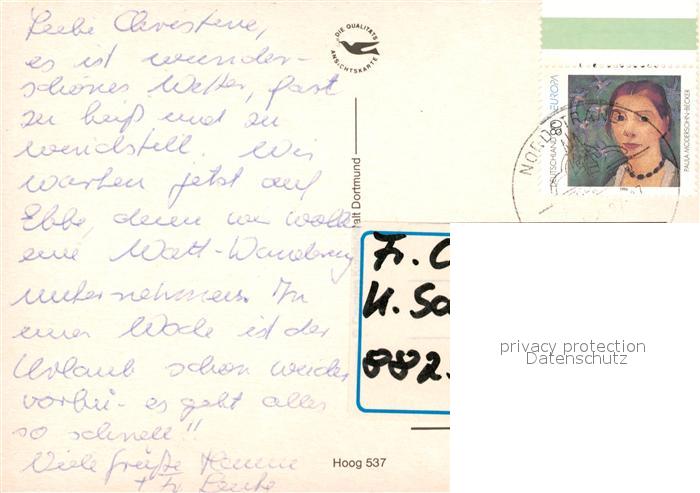 Liebe Christine,
es ist wunder-
schönes Wetter, fast
zu heiß und zu
windstill. Wir
warten jetzt auf
Ebbe denn wir wollen
eine Watt-Wanderung
unternehmen. In
einer Woche ist der
Urlaub schon wieder
vorbei - es geht alles
so schnell!!
Viele Grüße
DIE QUALITÄTS
ANSICHTSKARTE
alt Dortmund
Hoog 537
DEUTSCHLAND
80
EUROPA
PAULA MODERSOHN-BECKER
1996
NORDSTRAND
Fr. C
K. Sa
882.
privacy protection
Datenschutz